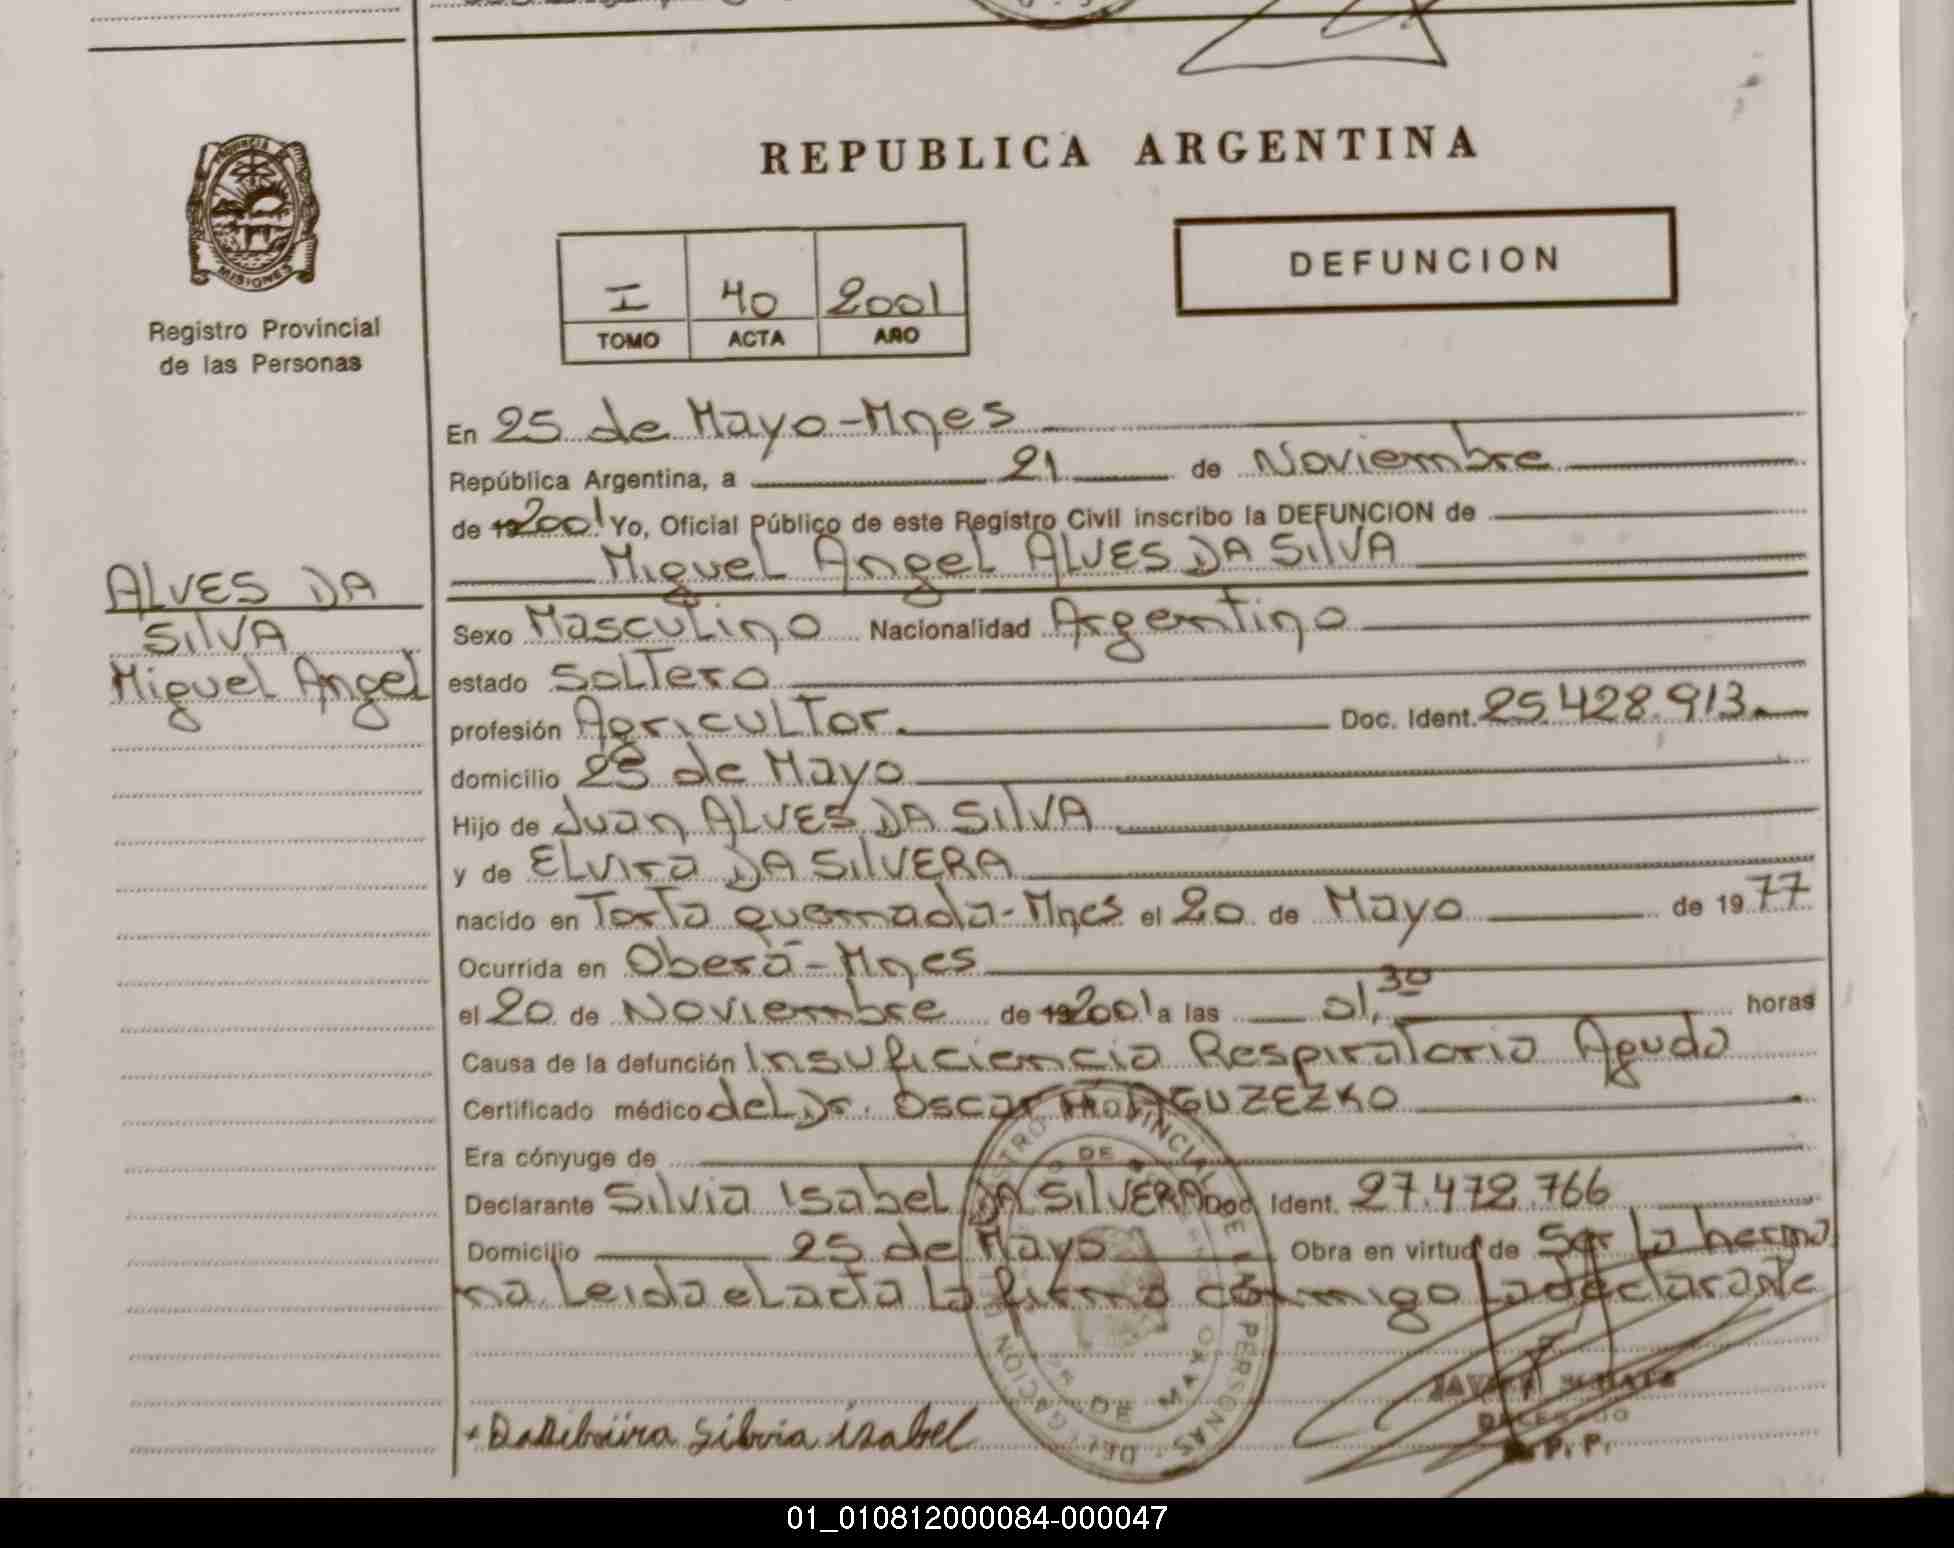 PROVINCIA DE
MISIONES
Registro Provincial
de las Personas
REPUBLICA ARGENTINA
DEFUNCION
I 40 2001
TOMO ACTA AÑO
En 25 de Mayo-Mnes
República Argentina, a 21 de Noviembre
de 19 2001 Yo, Oficial Público de este Registro Civil inscribo la DEFUNCION de
Miguel Angel ALVES DA SILVA
ALVES DA
SILVA
Miguel Angel
Sexo Masculino Nacionalidad Argentino
estado Soltero
profesión Agricultor. Doc. Ident. 25.428.913.
domicilio 25 de Mayo
Hijo de Juan ALVES DA SILVA
y de Elvira DA SILVERA
nacido en Torta quemada-Mnes el 20 de Mayo de 1977
Ocurrida en Oberá-Mnes
el 20 de Noviembre de 19 2001 a las 01,30 horas
Causa de la defunción Insuficiencia Respiratoria Aguda
Certificado médico del Dr. Oscar
Era cónyuge de
Declarante Silvia Isabel DA SILVERA Doc. Ident. 27.472.766
Domicilio 25 de Mayo Obra en virtud de Ser la herma
na. Leida el acta la firma conmigo la declarante
Silvia isabel
DELEGADO
R. P. P.
REGISTRO PROVINCIAL DE LAS PERSONAS - DELEGACION
25 DE MAYO
01_010812000084-000047